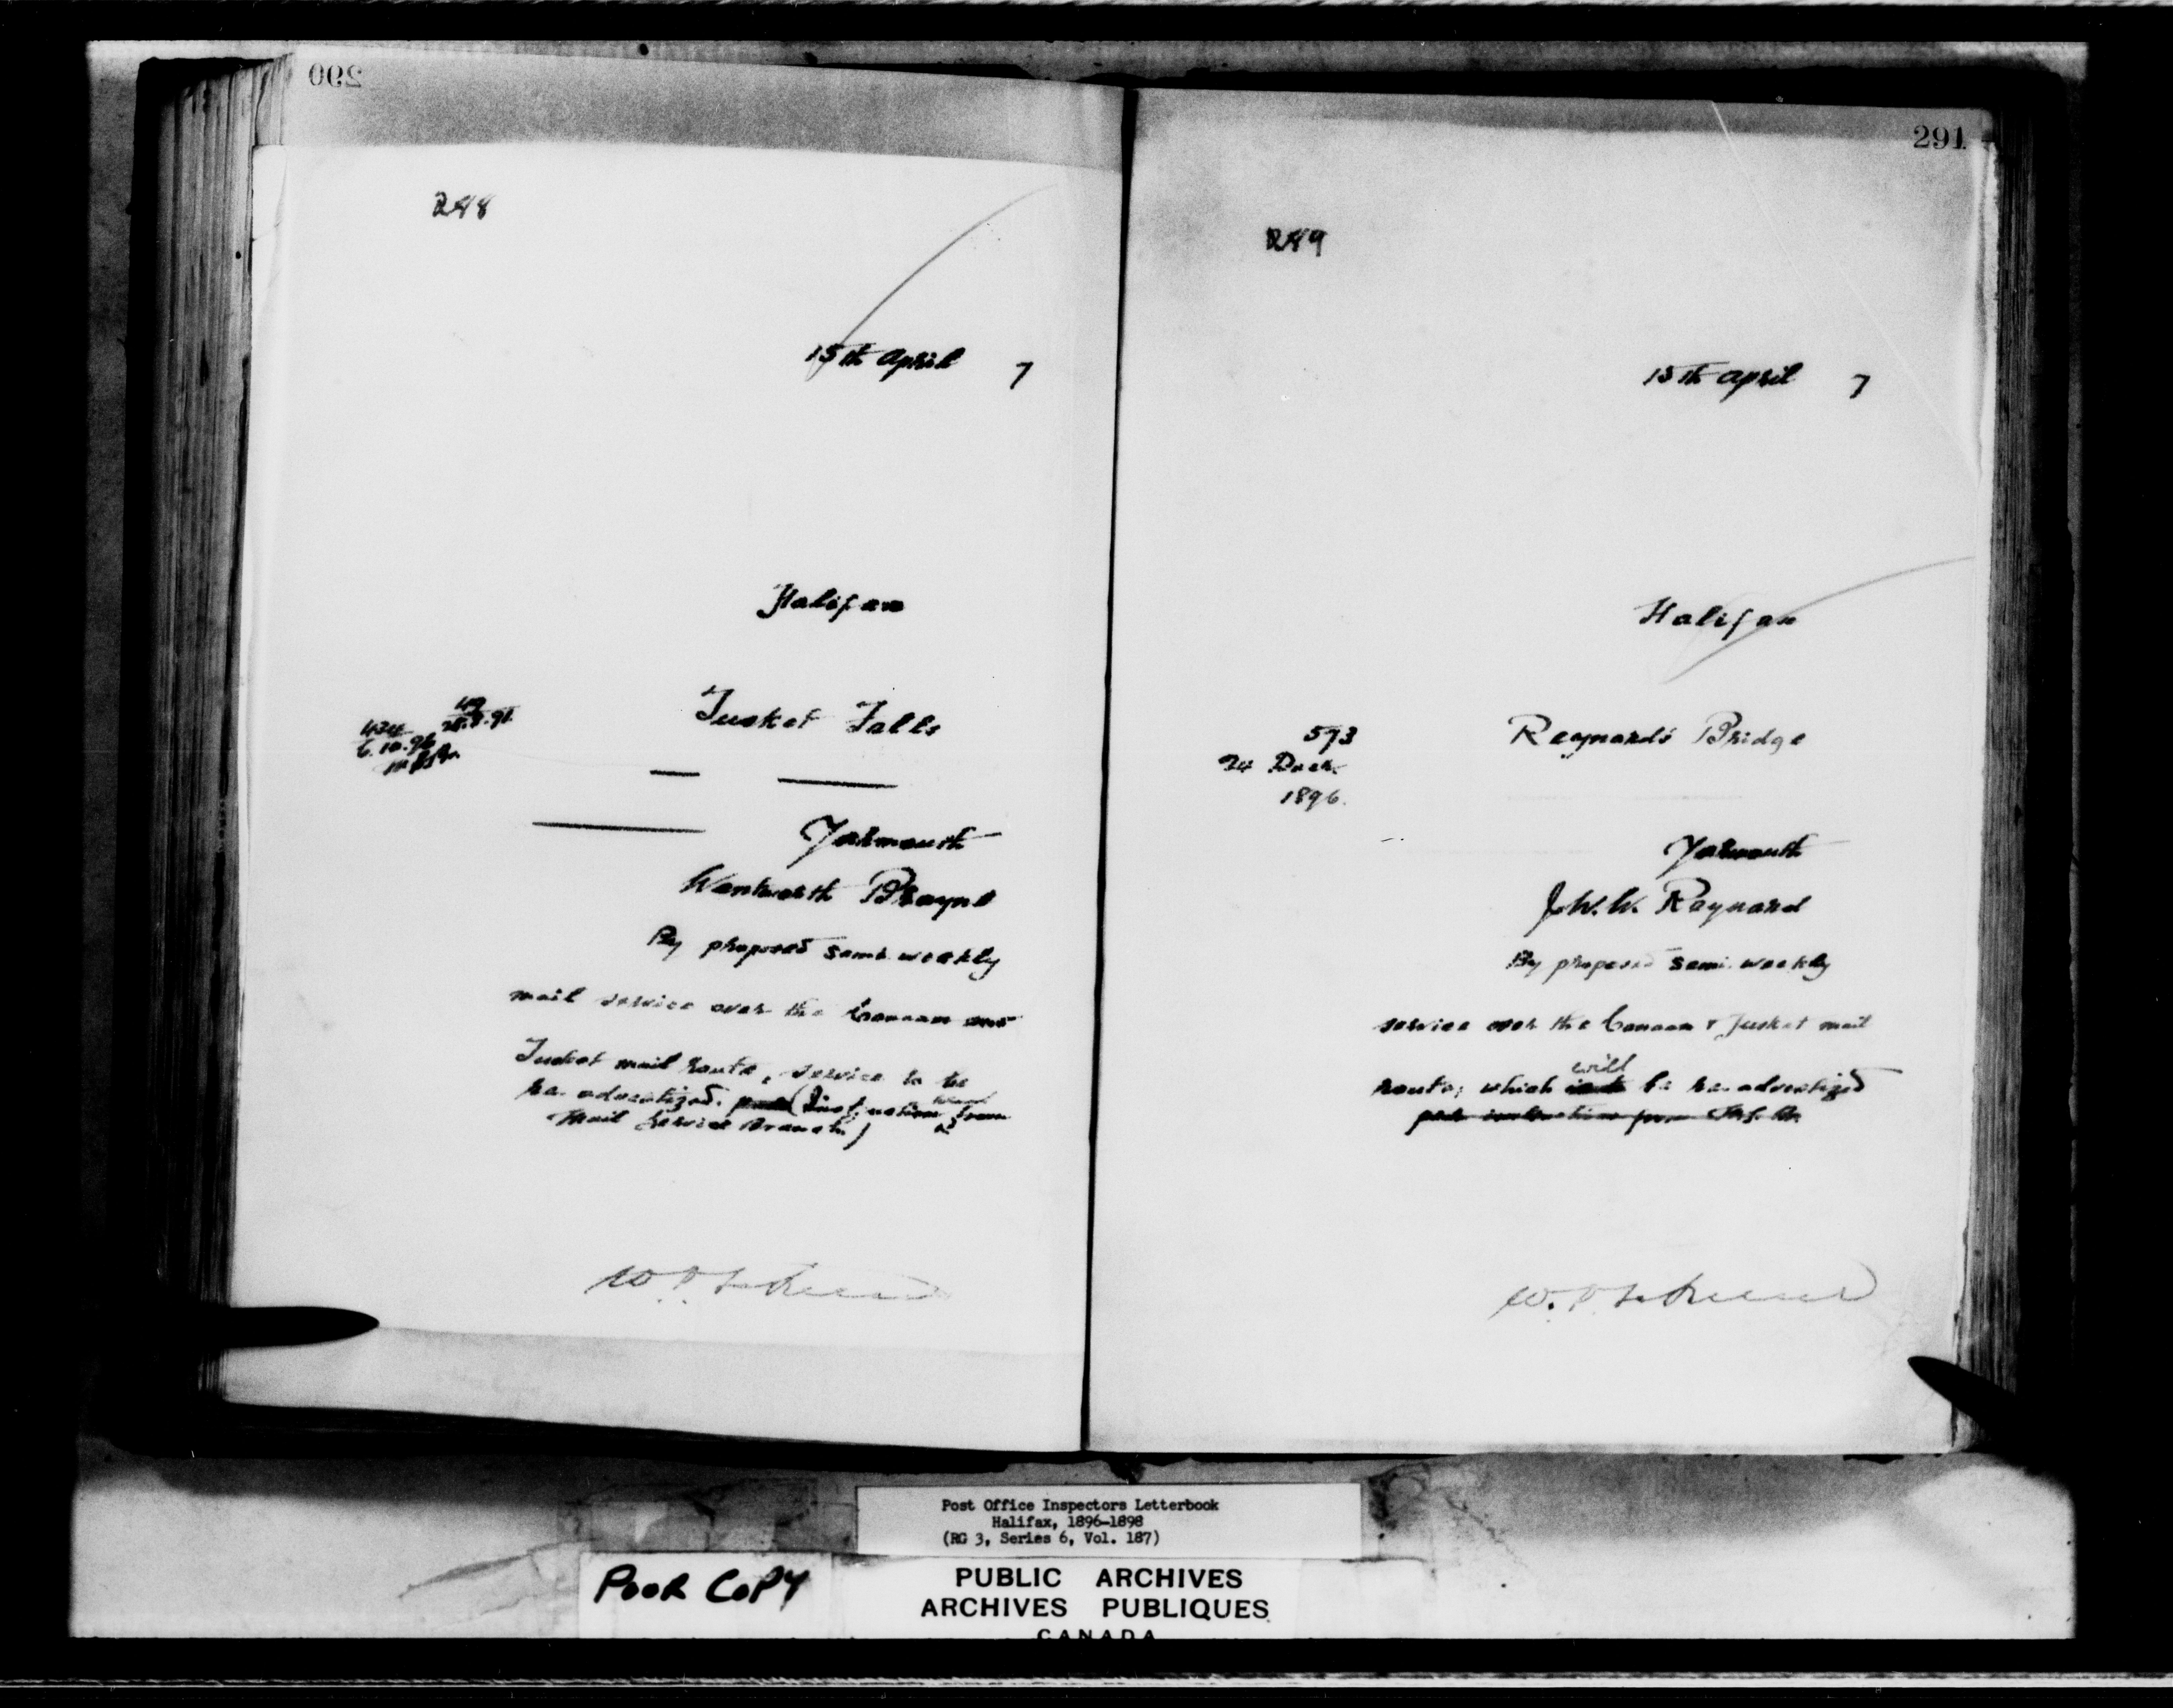 290
288
15th April 7
Halifax
Tusket Falls
6.10.96
Yarmouth
Wentworth Prayne
By proposed semi-weekly
mail service over the Canaan and
Tusket mail route, service to be
re-advertized. from
Mail Service Branch)
291
289
15th April 7
Halifax
573
24 Decr.
1896.
Raynard's Bridge
Yarmouth
J.W.W. Raynard
By proposed semi-weekly
service over the Canaan & Tusket mail
will
route; which be re-advertized
Post Office Inspectors Letterbook
Halifax, 1896-1898
(RG 3, Series 6, Vol. 187)
POOR COPY
PUBLIC ARCHIVES
ARCHIVES PUBLIQUES
CANADA